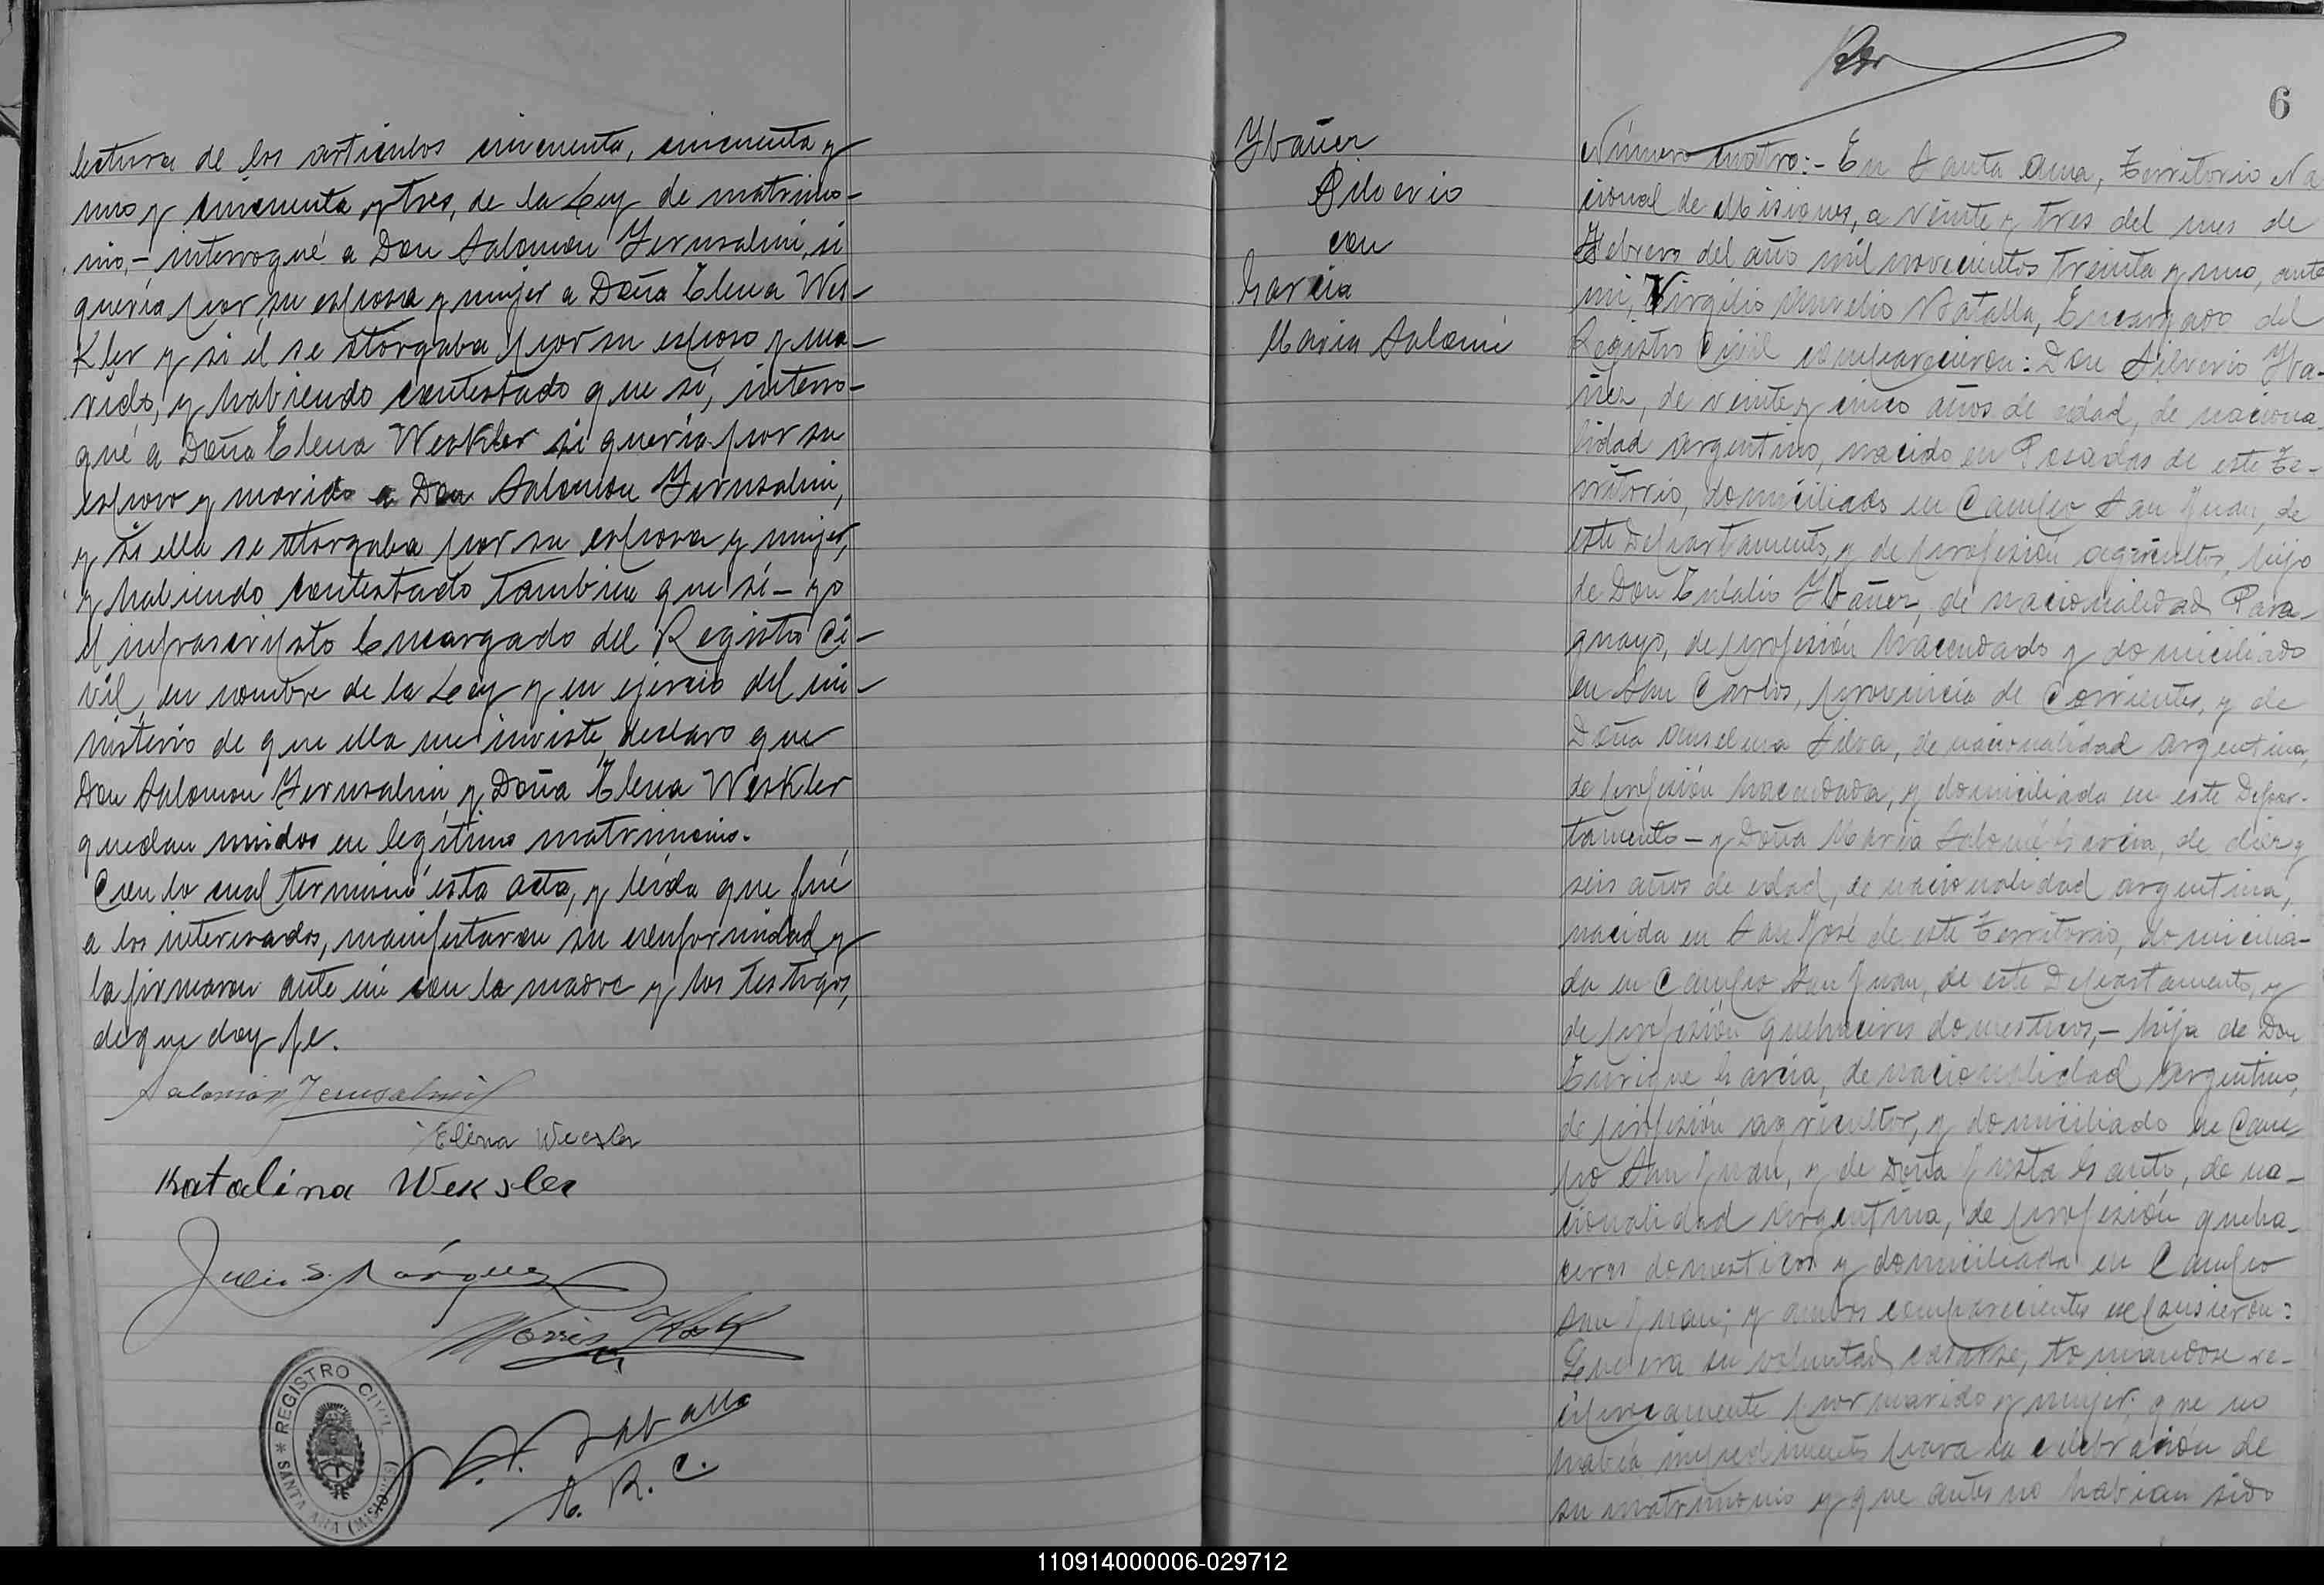 lectura de los articulos cincuenta, cincuenta y
uno y cincuenta y tres, de la Ley de matrimo-
nio,- interrogué a Don Salomon Jerusalmi, si
quería por su esposa y mujer a Doña Elena Wes-
Kler y si él se otorgaba por su esposo y ma-
rido, y habiendo contestado que sí, interro-
gué a Doña Elena Weskler si quería por su
esposo y marido a Don Salomon Jerusalmi,
y si ella se otorgaba por su esposa y mujer,
y habiendo contestado tambien que sí - yo
el infrascripto Encargado del Registro Ci-
vil, en nombre de la Ley y en ejercio del mi-
nisterio de que ella me inviste, declaro que
Don Salomon Jerusalmi y Doña Elena Weskler
quedan unidos en legítimo matrimonio.
Con lo cual terminó esta acta, y leida que fué
a los interesados, manifestaron su conformidad y
la firmaron ante mi con la madre y los testigos,
de que doy fe.
Salomon Jerusalmi
Elena
Katalina Weksler
Julio S. Márquez
REGISTRO CIVIL
* SANTA ANA (MISIONES)
E. R. C.
6
Ybañez
Silverio
con
Garcia
Maria Salomé
Número cuatro:- En Santa Ana, Territorio Na
cional de Misiones, a veinte y tres del mes de
Febrero del año mil novecientos treinta y uno, ante
mi, Virgilio Aurelio Batalla, Encargado del
Registro Civil comparecieron: Don Silverio Yba-
ñez, de veinte y cinco años de edad, de naciona
lidad argentino, nacido en Posadas de este Te-
rritorio, domiciliado en Campo San Juan, de
este Departamento, y de profesión agricultor, hijo
de Don Eulalio Ybañez, de nacionalidad Para-
guayo, de profesión hacendado y domiciliado
en San Carlos, provincia de Corrientes, y de
Doña Anselma Silva, de nacionalidad argentina,
de profesión hacendada, y domiciliada en este Depar-
tamento - y Doña Maria Salomé Garcia, de diez y
seis años de edad, de nacionalidad argentina,
nacida en San José de este Territorio, domicilia-
da en Campo San Juan, de este Departamento, y
de profesión quehaceres domesticos,- hija de Don
Enrique Garcia, de nacionalidad argentino,
de profesión agricultor, y domiciliado en Cam-
po San Juan, y de Doña Justa, de na-
cionalidad argentina, de profesión queha-
ceres domesticos y domiciliada en Campo
San Juan; y ambos comparecientes expusieron:
Que era su voluntad casarse, tomandose re-
ciprocamente por marido y mujer; que no
había impedimento para la celebración de
su matrimonio y que antes no habian sido
110914000006-029712